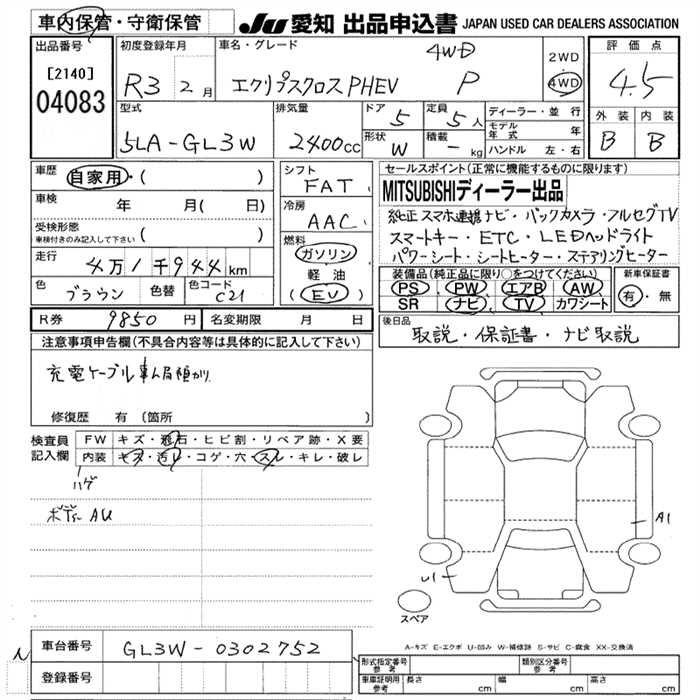 車内保管・守衛保管
JU 愛知 出品申込書 JAPAN USED CAR DEALERS ASSOCIATION
出品番号
[2140]
04083
初度登録年月
R3 2 月
車名・グレード
4WD
エクリプスクロスPHEV P
2WD
4WD
評価点
4.5
外装 内装
B B
型式
5LA-GL3W
排気量
2400cc
ドア 5
定員 5人
形状 W
積載 - kg
ディーラー・並行
モデル年式 年
ハンドル 左・右
車歴
自家用・( )
車検 年 月( 日)
受検形態
車検付きのみ記入して下さい ( )
走行
4万1千944km
色 ブラウン 色替 色コード C21
シフト
FAT
冷房
AAC
燃料
ガソリン
軽油
(EV)
セールスポイント(正常に機能するものに限ります)
MITSUBISHIディーラー出品
純正スマホ連携ナビ・バックカメラ・フルセグTV
スマートキー・ETC・LEDヘッドライト
パワーシート・シートヒーター・ステアリングヒーター
装備品(純正品に限り○をつけてください)
PS PW エアB AW
SR ナビ TV カワシート
新車保証書
有・無
R券 9850円 名変期限 月 日
後日品
取説・保証書・ナビ取説
注意事項申告欄(不具合内容等は具体的に記入して下さい)
充電ケーブル事ム局預かり
修復歴 有 (箇所 )
検査員
記入欄
FW キズ・飛石・ヒビ割・リペア跡・X要
内装 キズ・汚レ・コゲ・穴・スレ・キレ・破レ
ハゲ
ボディー AU
A1
U1
スペア
A-キズ E-エクボ U-凹み W-補修跡 S-サビ C-腐食 XX-交換済
車台番号 GL3W-0302752
登録番号
形式指定番号 参考
類別区分番号 参考
車車証明用 参考 長さ cm 幅 cm 高さ cm